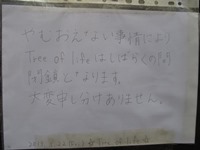 やむおえない事情により
Tree of lifeはしばらくの間
閉鎖しております。
大変申し分けありません。